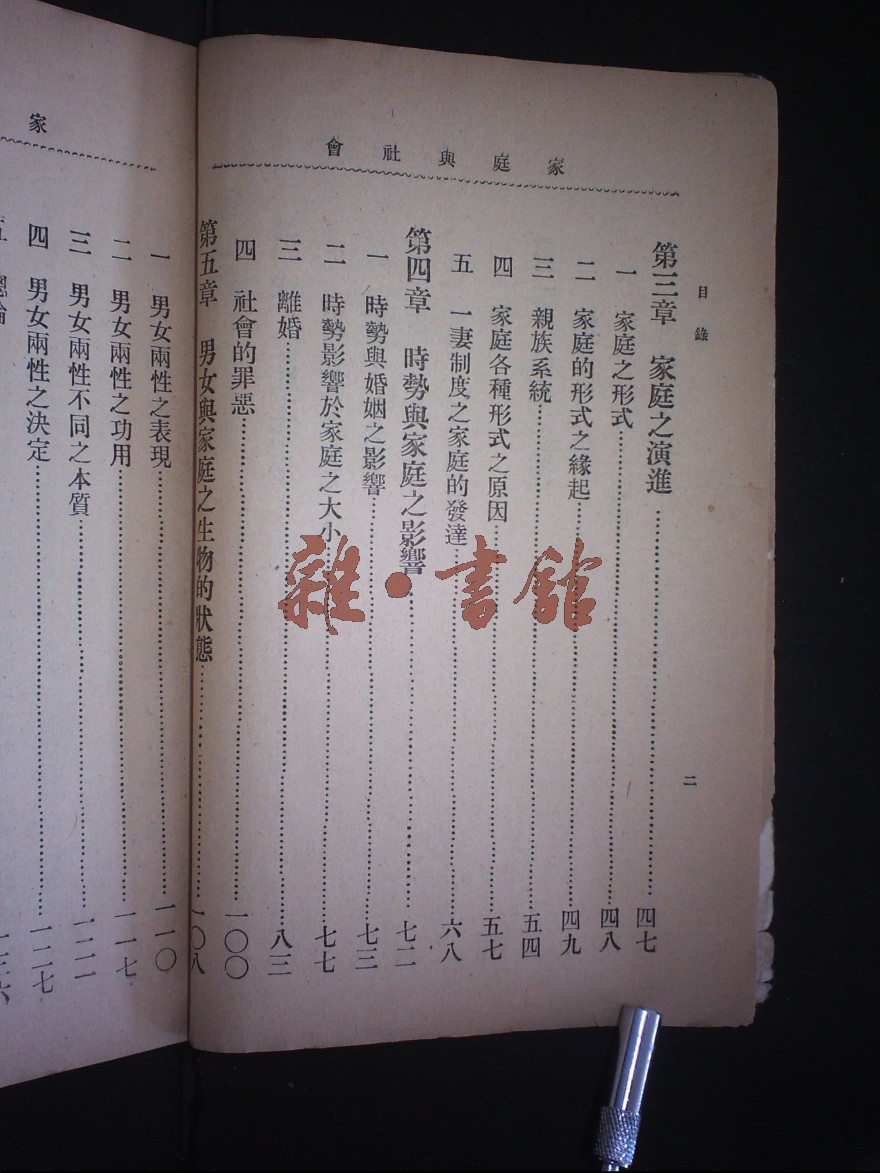 家庭與社會
目錄
二
第三章 家庭之演進……四七
一 家庭之形式……四八
二 家庭的形式之緣起……四九
三 親族系統……五四
四 家庭各種形式之原因……五七
五 一妻制度之家庭的發達……六八
第四章 時勢與家庭之影響……七二
一 時勢與婚姻之影響……七三
二 時勢影響於家庭之大小……七七
三 離婚……八三
四 社會的罪惡……一〇〇
第五章 男女與家庭之生物的狀態……一〇八
家
一 男女兩性之表現……一一〇
二 男女兩性之功用……一一七
三 男女兩性不同之本質……一二一
四 男女兩性之決定……一二七
五 總論……一三六
雜·書館